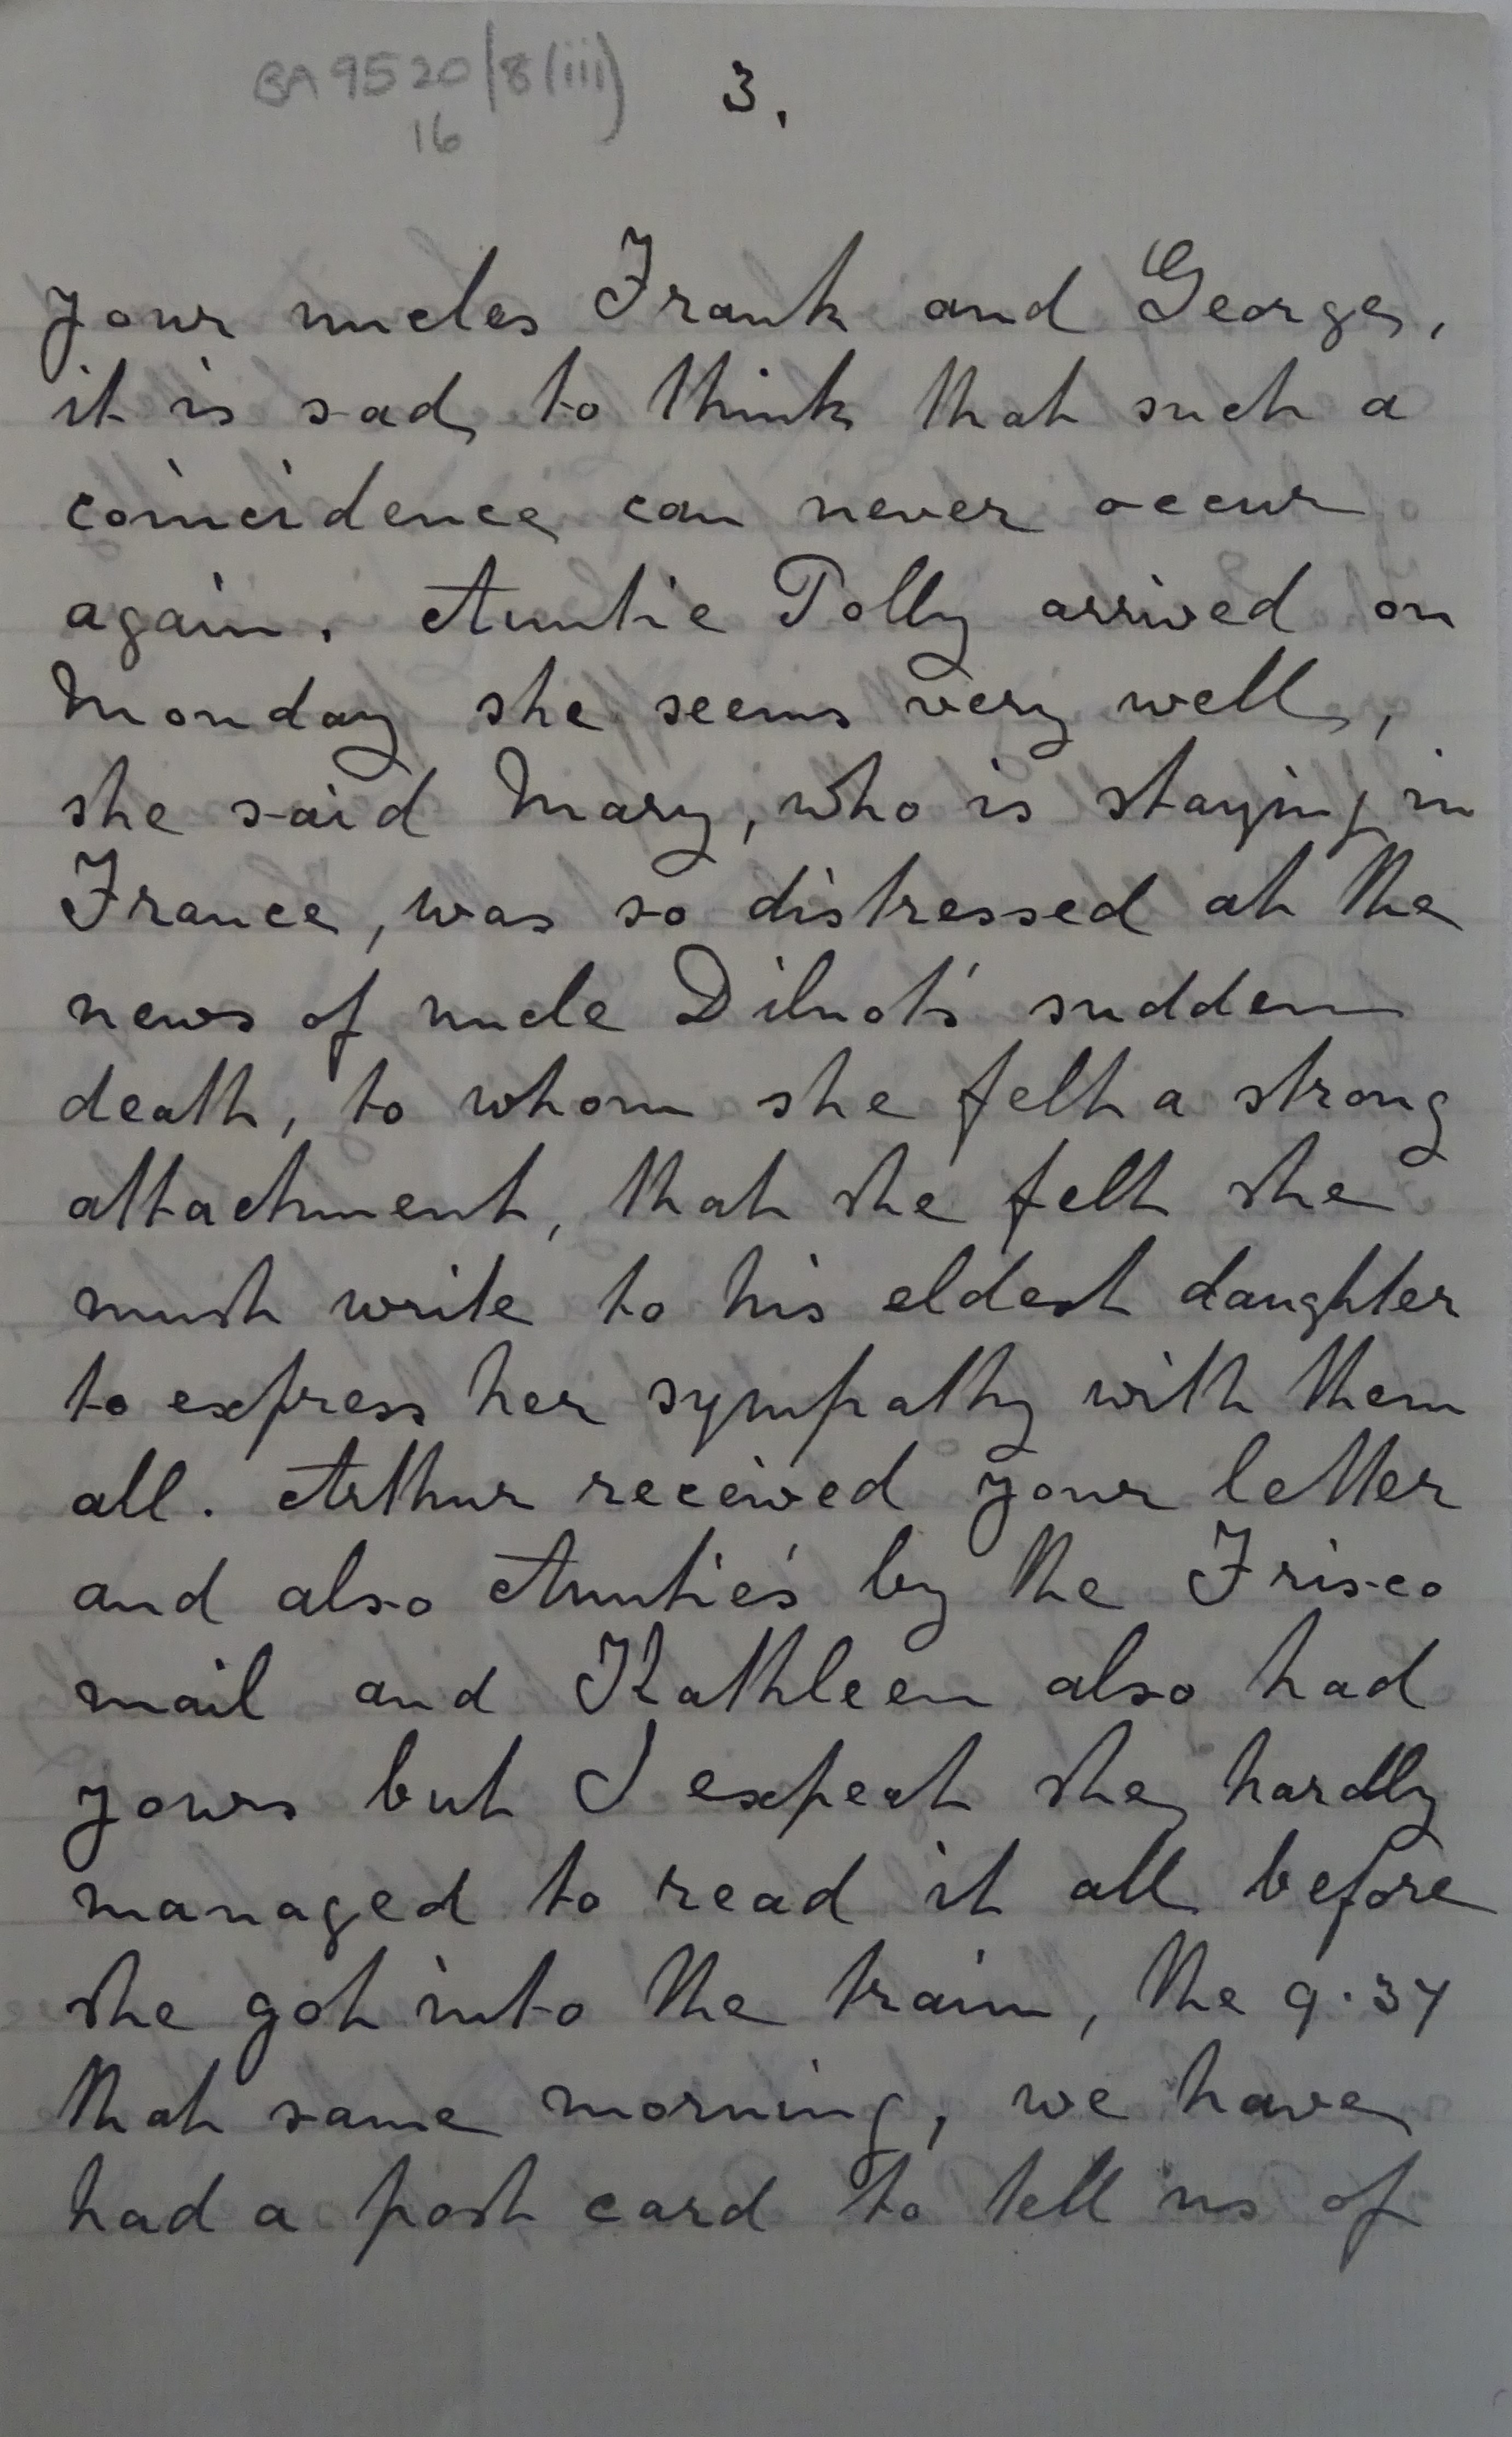 BA 9520/8(iii)
16
3.
your uncles Frank and George,
it is sad to think that such a
coincidence can never occur
again. Auntie Polly arrived on
Monday she seems very well,
she said Mary, who is staying in
France, was so distressed at the
news of uncle Dilnot's sudden
death, to whom she felt a strong
attachment, that she felt she
must write to his eldest daughter
to express her sympathy with them
all. Arthur received your letter
and also Auntie's by the Frisco
mail and Kathleen also had
yours but I expect she hardly
managed to read it all before
she got into the train, the 9.37
that same morning, we have
had a post card to tell us of